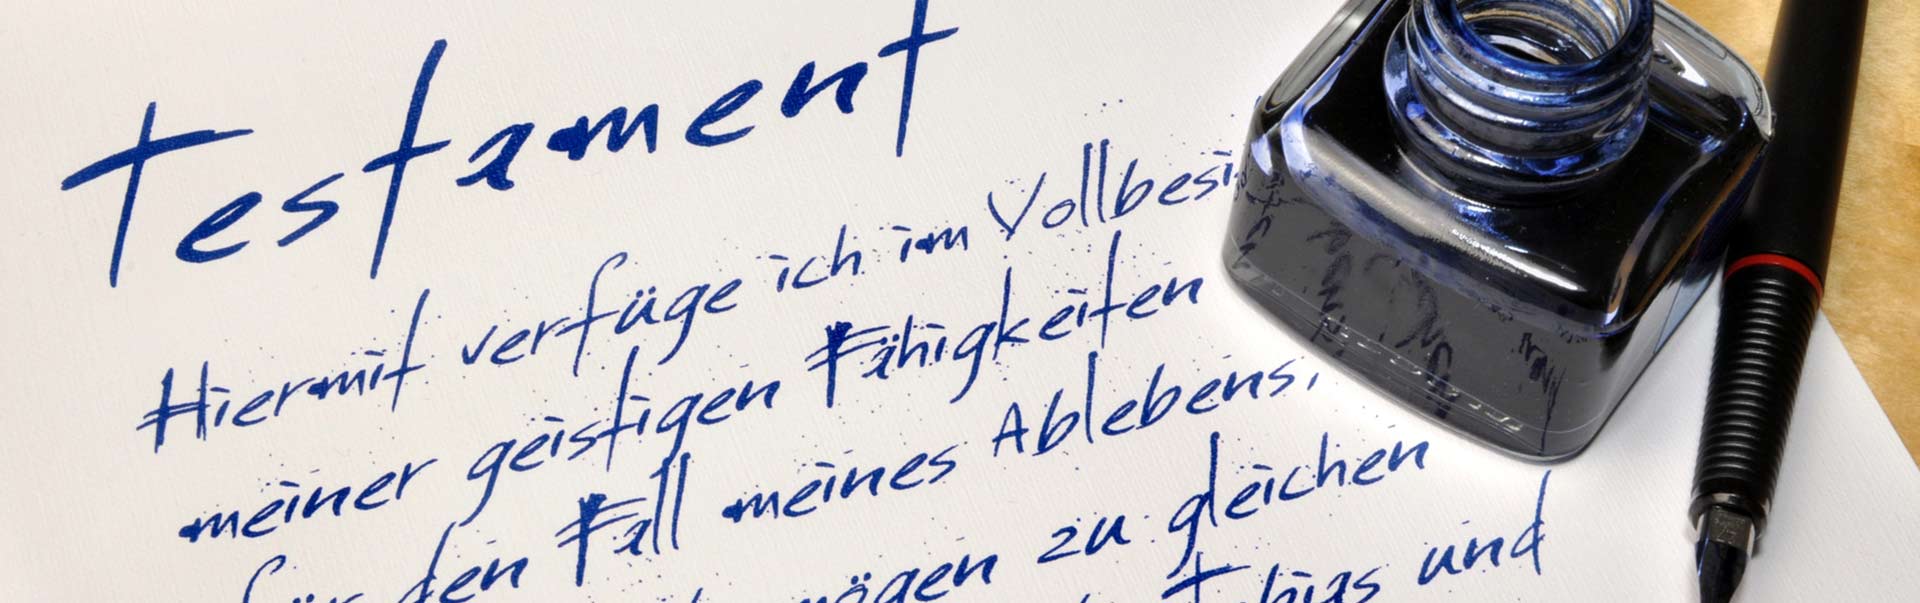 Testament
Hiermit verfüge ich im Vollbesi
meiner geistigen Fähigkeiten
für den Fall meines Ablebens,
mögen zu gleichen
Tobias und